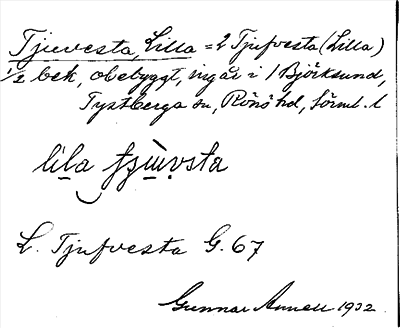 Tjuvesta, Lilla = L Tjufvesta (Lilla)
1/2 bek, obebyggt, ingår i /Björksund,
Tystberga sn, Rönö hd, Sörml. l
lila tju̇vsta
L. Tjufvesta G. 67
Gunnar Annell 1932